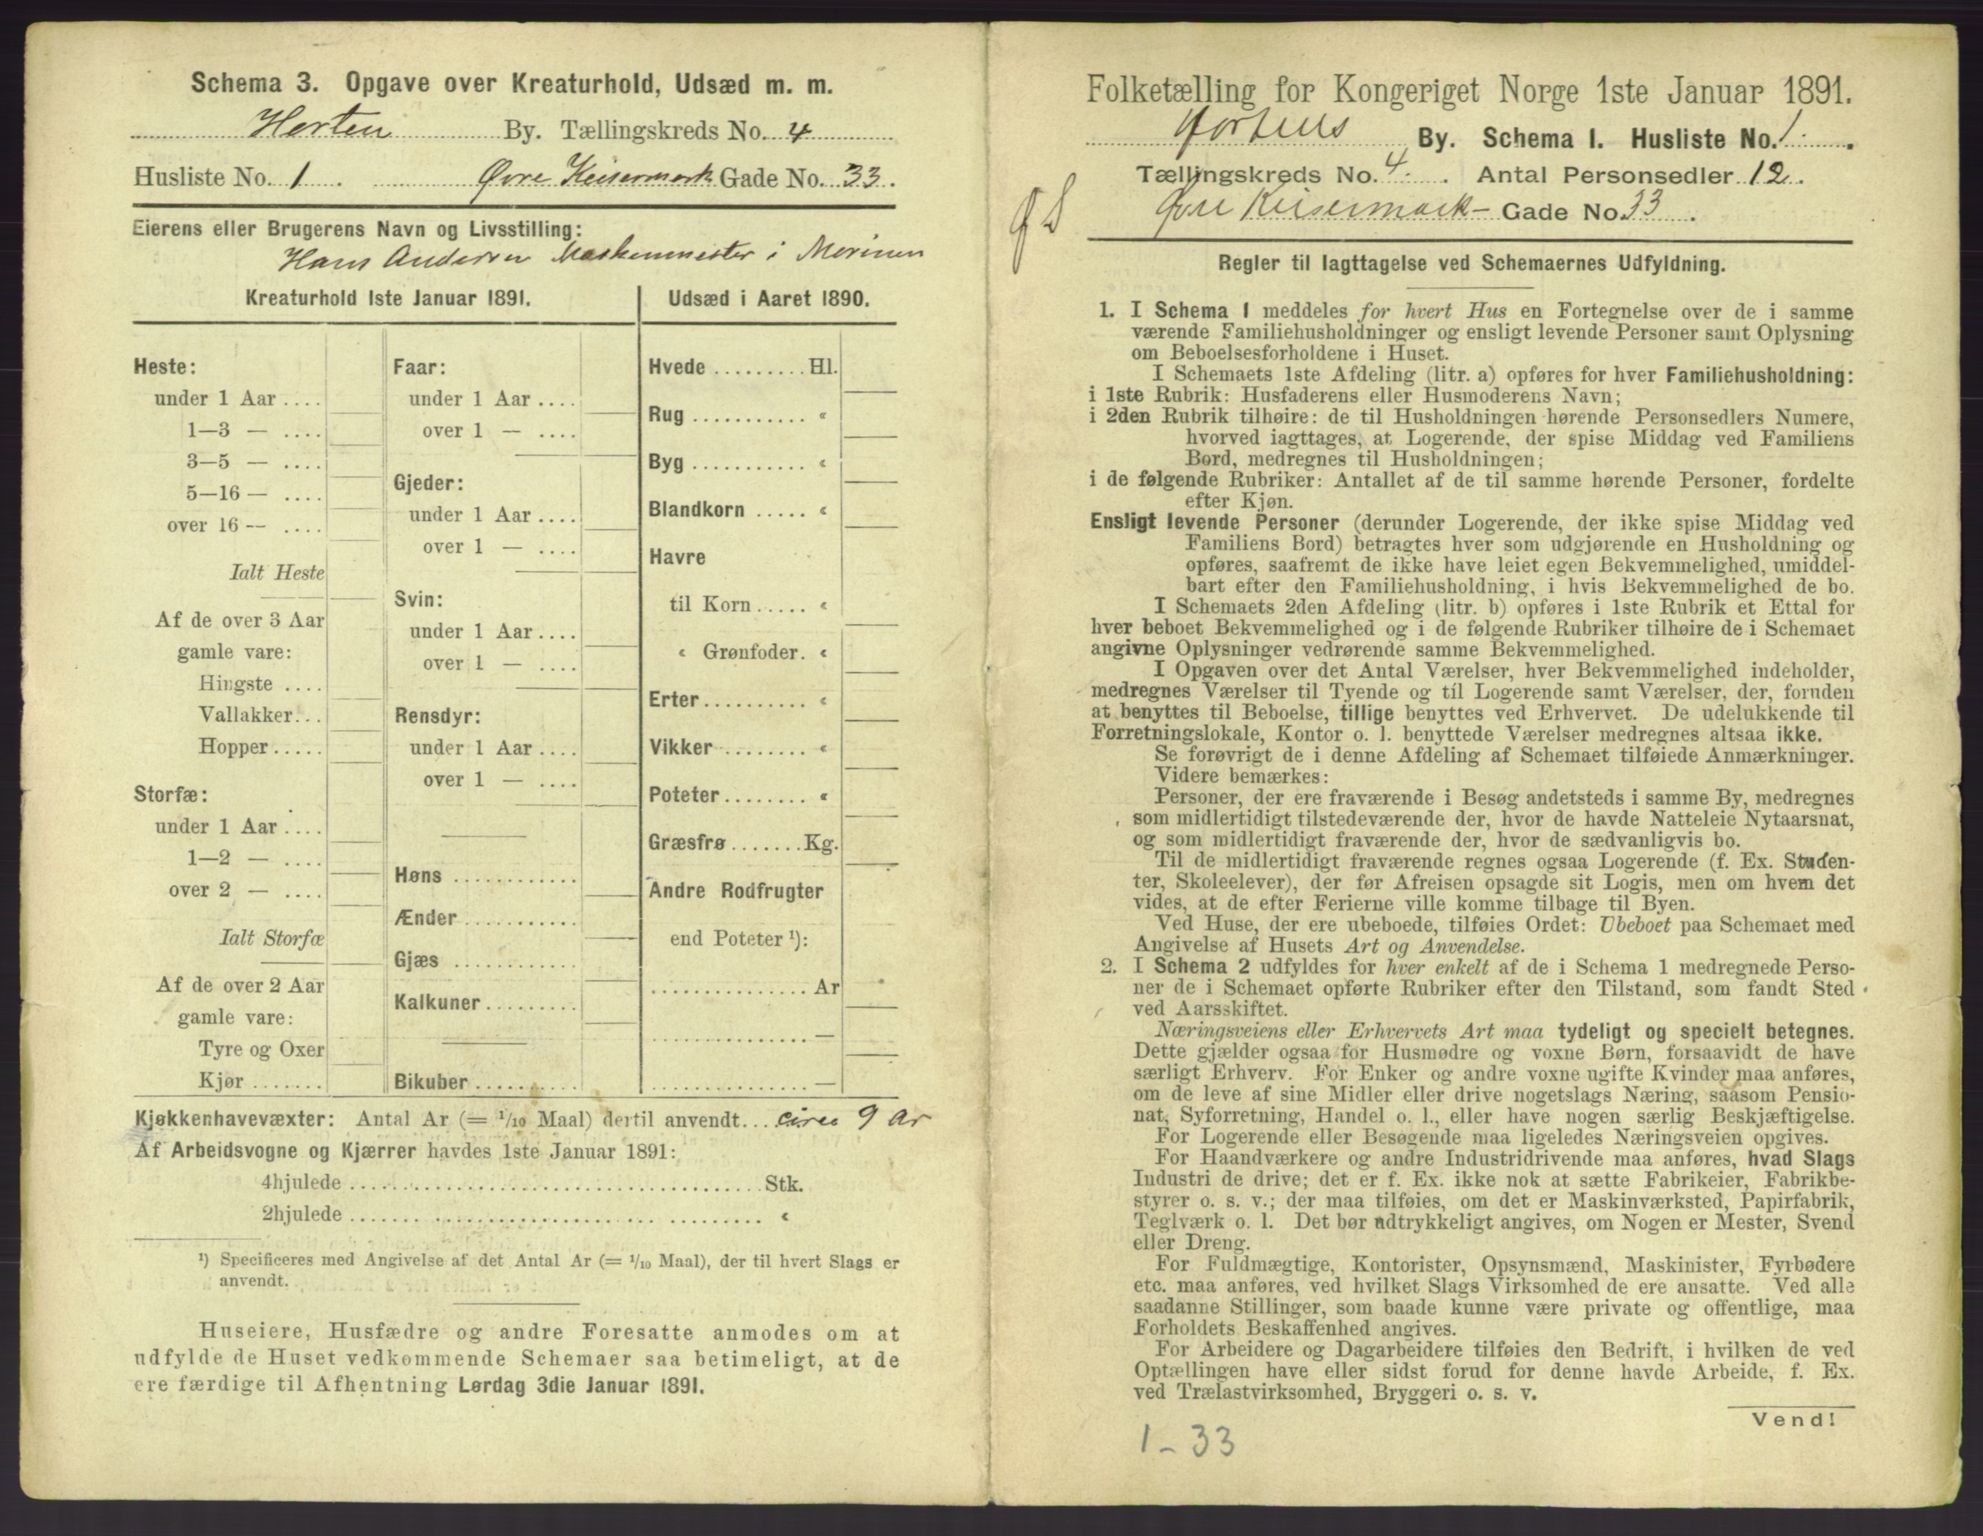 Schema 3. Opgave over Kreaturhold, Udsæd m. m.
Horten By. Tællingskreds No. 4
Husliste No. 1. Øvre Keisermark Gade No. 33.
Eierens eller Brugerens Navn og Livsstilling:
Hans Andersen Maskinmester i Marinen
Kreaturhold 1ste Januar 1891.
Heste:
under 1 Aar ....
1—3 — ....
3—5 — ....
5—16 — ....
over 16 — ....
Ialt Heste
Af de over 3 Aar
gamle vare:
Hingste ....
Vallakker...
Hopper.....
Storfæ:
under 1 Aar ....
1—2 — ....
over 2 — ....
Ialt Storfæ
Af de over 2 Aar
gamle vare:
Tyre og Oxer
Kjør .......
Faar:
under 1 Aar ....
over 1 — ....
Gjeder:
under 1 Aar ....
over 1 — ....
Svin:
under 1 Aar ....
over 1 — ....
Rensdyr:
under 1 Aar ....
over 1 — ....
Høns ............
Ænder ...........
Gjæs ............
Kalkuner .........
Bikuber ..........
Udsæd i Aaret 1890.
Hvede ......... Hl.
Rug ........... «
Byg ........... «
Blandkorn ..... «
Havre
til Korn ..... «
« Grønfoder. «
Erter .......... «
Vikker ........ «
Poteter ........ «
Græsfrø ....... Kg.
Andre Rodfrugter
end Poteter ¹):
............... Ar
............... —
............... —
Kjøkkenhavevæxter: Antal Ar (= 1/10 Maal) dertil anvendt... circa 9 Ar
Af Arbeidsvogne og Kjærrer havdes 1ste Januar 1891:
4hjulede ........................................ Stk.
2hjulede ........................................ «
¹) Specificeres med Angivelse af det Antal Ar (= 1/10 Maal), der til hvert Slags er
anvendt.
Huseiere, Husfædre og andre Foresatte anmodes om at
udfylde de Huset vedkommende Schemaer saa betimeligt, at de
ere færdige til Afhentning Lørdag 3die Januar 1891.
Folketælling for Kongeriget Norge 1ste Januar 1891.
Hortens By. Schema I. Husliste No. 1.
Tællingskreds No. 4. Antal Personsedler 12.
Øvre Keisermark- Gade No. 33.
Regler til Iagttagelse ved Schemaernes Udfyldning.
1. I Schema 1 meddeles for hvert Hus en Fortegnelse over de i samme
værende Familiehusholdninger og ensligt levende Personer samt Oplysning
om Beboelsesforholdene i Huset.
I Schemaets 1ste Afdeling (litr. a) opføres for hver Familiehusholdning:
i 1ste Rubrik: Husfaderens eller Husmoderens Navn;
i 2den Rubrik tilhøire: de til Husholdningen hørende Personsedlers Numere,
hvorved iagttages, at Logerende, der spise Middag ved Familiens
Bord, medregnes til Husholdningen;
i de følgende Rubriker: Antallet af de til samme hørende Personer, fordelte
efter Kjøn.
Ensligt levende Personer (derunder Logerende, der ikke spise Middag ved
Familiens Bord) betragtes hver som udgjørende en Husholdning og
opføres, saafremt de ikke have leiet egen Bekvemmelighed, umiddel-
bart efter den Familiehusholdning, i hvis Bekvemmelighed de bo.
I Schemaets 2den Afdeling (litr. b) opføres i 1ste Rubrik et Ettal for
hver beboet Bekvemmelighed og i de følgende Rubriker tilhøire de i Schemaet
angivne Oplysninger vedrørende samme Bekvemmelighed.
I Opgaven over det Antal Værelser, hver Bekvemmelighed indeholder,
medregnes Værelser til Tyende og til Logerende samt Værelser, der, foruden
at benyttes til Beboelse, tillige benyttes ved Erhvervet. De udelukkende til
Forretningslokale, Kontor o. l. benyttede Værelser medregnes altsaa ikke.
Se forøvrigt de i denne Afdeling af Schemaet tilføiede Anmærkninger.
Videre bemærkes:
Personer, der ere fraværende i Besøg andetsteds i samme By, medregnes
som midlertidigt tilstedeværende der, hvor de havde Natteleie Nytaarsnat,
og som midlertidigt fraværende der, hvor de sædvanligvis bo.
Til de midlertidigt fraværende regnes ogsaa Logerende (f. Ex. Studen-
ter, Skoleelever), der før Afreisen opsagde sit Logis, men om hvem det
vides, at de efter Ferierne ville komme tilbage til Byen.
Ved Huse, der ere ubeboede, tilføies Ordet: Ubeboet paa Schemaet med
Angivelse af Husets Art og Anvendelse.
2. I Schema 2 udfyldes for hver enkelt af de i Schema 1 medregnede Perso-
ner de i Schemaet opførte Rubriker efter den Tilstand, som fandt Sted
ved Aarsskiftet.
Næringsveiens eller Erhvervets Art maa tydeligt og specielt betegnes.
Dette gjælder ogsaa for Husmødre og voxne Børn, forsaavidt de have
særligt Erhverv. For Enker og andre voxne ugifte Kvinder maa anføres,
om de leve af sine Midler eller drive nogetslags Næring, saasom Pensio-
nat, Syforretning, Handel o. l., eller have nogen særlig Beskjæftigelse.
For Logerende eller Besøgende maa ligeledes Næringsveien opgives.
For Haandværkere og andre Industridrivende maa anføres, hvad Slags
Industri de drive; det er f. Ex. ikke nok at sætte Fabrikeier, Fabrikbe-
styrer o. s. v.; der maa tilføies, om det er Maskinværksted, Papirfabrik,
Teglværk o. l. Det bør udtrykkeligt angives, om Nogen er Mester, Svend
eller Dreng.
For Fuldmægtige, Kontorister, Opsynsmænd, Maskinister, Fyrbødere
etc. maa anføres, ved hvilket Slags Virksomhed de ere ansatte. Ved alle
saadanne Stillinger, som baade kunne være private og offentlige, maa
Forholdets Beskaffenhed angives.
For Arbeidere og Dagarbeidere tilføies den Bedrift, i hvilken de ved
Optællingen have eller sidst forud for denne havde Arbeide, f. Ex.
ved Trælastvirksomhed, Bryggeri o. s. v.
Vend!
1-33